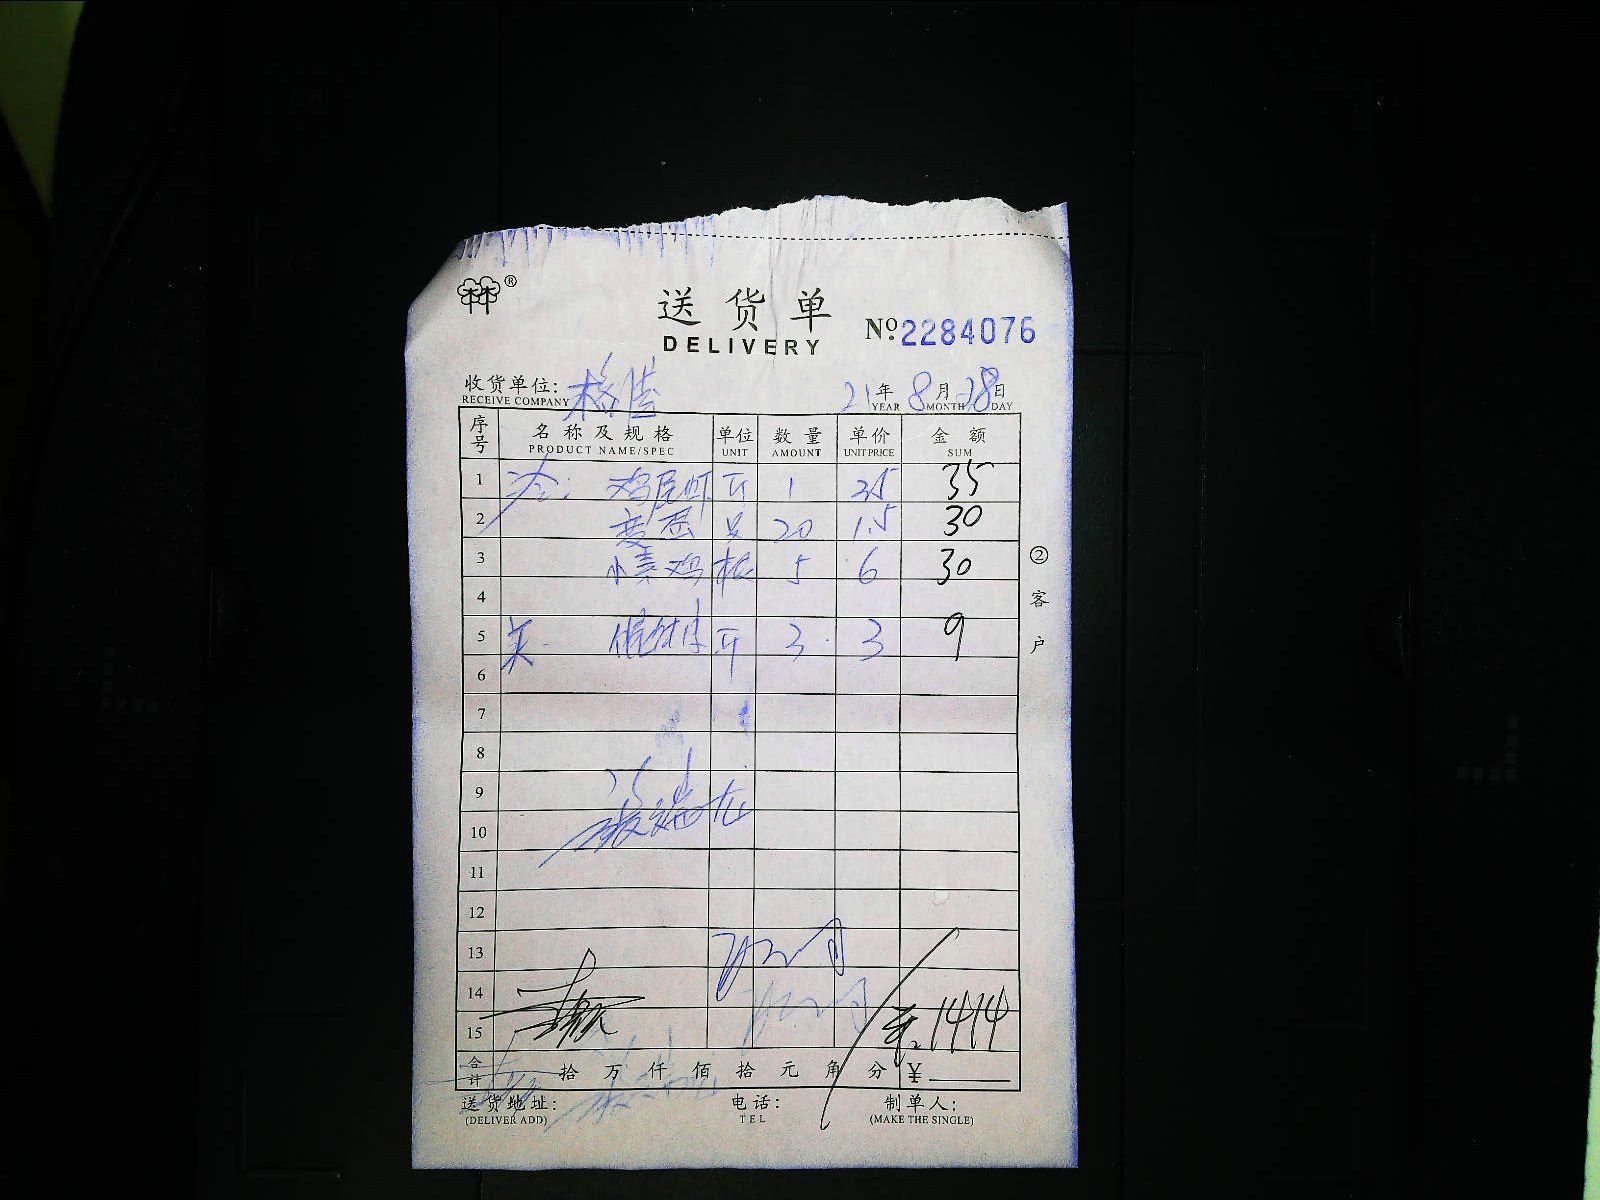 林®
送货单
DELIVERY
No.2284076
收货单位:
RECEIVE COMPANY
21年 8月 28日
YEAR MONTH DAY
序号 名称及规格 单位 数量 单价 金额
PRODUCT NAME/SPEC UNIT AMOUNT UNIT PRICE SUM
1 冷: 鸡尾虾 斤 1 35 35
2 只 20 1.5 30
3 小素鸡 根 5 6 30
4
5 斤 3 3 9
6
7
8
9
10
11
12
13
14
15 1414
合计 拾 万 仟 佰 拾 元 角 分 ¥
② 客户
送货地址: 电话: 制单人:
(DELIVER ADD) TEL (MAKE THE SINGLE)